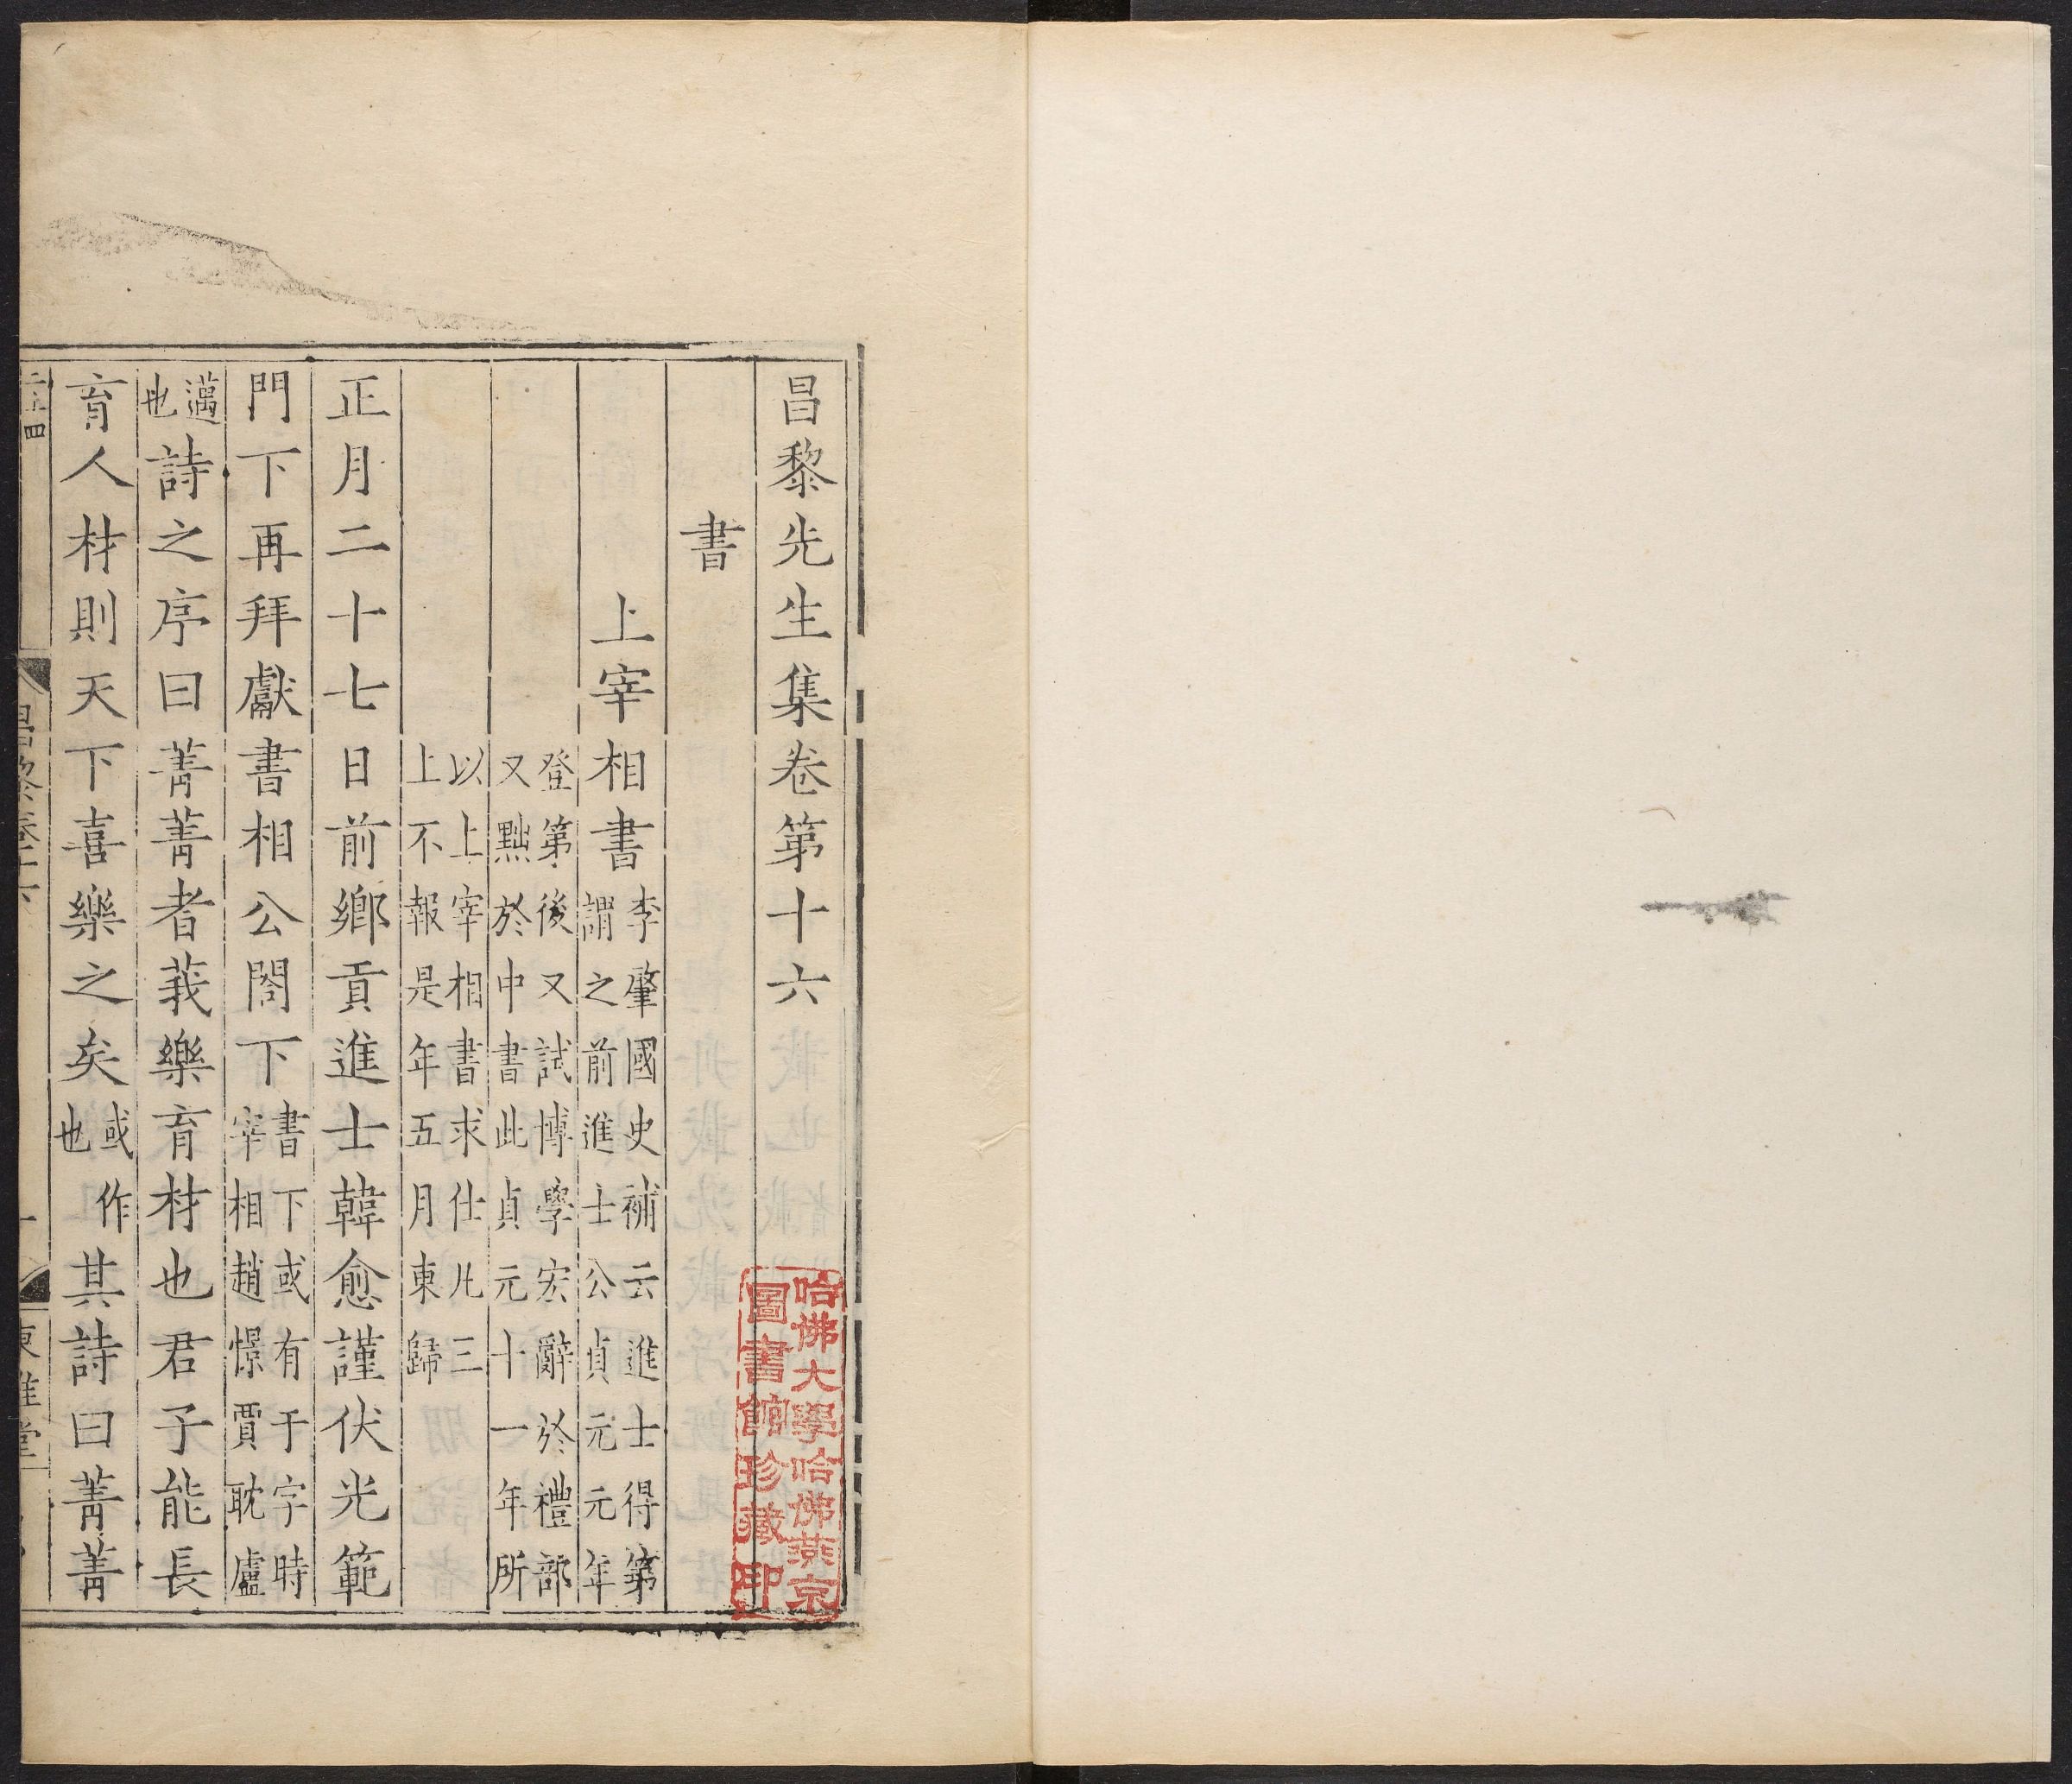 昌黎先生集卷第十六
書
上宰相書李肇國史補云進士得第謂之前進士公貞元元年
登第後又試博學宏辭於禮部又黜於中書此貞元十一年所
以上宰相書求仕凡三上不報是年五月東歸
正月二十七日前鄉貢進士韓愈謹伏光範
門下再拜獻書相公閤下書下或有于字時宰相趙憬賈耽盧
邁也詩之序曰菁菁者莪樂育材也君子能長
育人材則天下喜樂之矣或作也其詩曰菁菁
昌黎卷十六
一
東雅堂
哈佛大學哈佛燕京
圖書館珍藏印